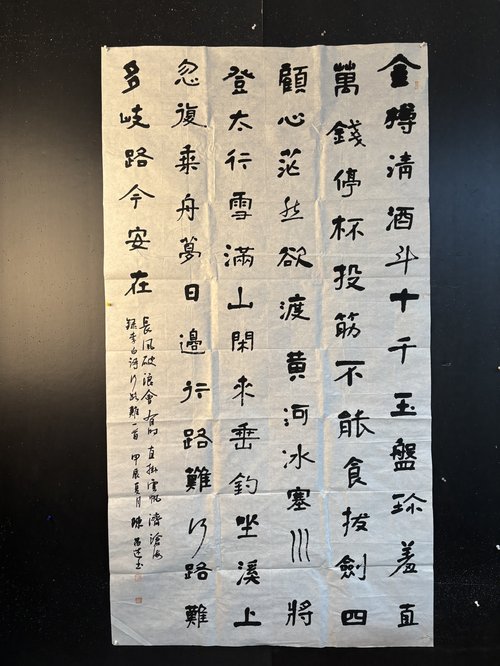 金樽清酒斗十千玉盤珍羞直
萬錢停杯投筯不能食拔劍四
顧心茫然欲渡黃河冰塞川將
登太行雪滿山閑來垂釣坐溪上
忽復乘舟夢日邊行路難行路難
多岐路今安在
長風破浪會有時直掛雲帆濟滄海
錄李白詩行路難一首 甲辰夏月 陳